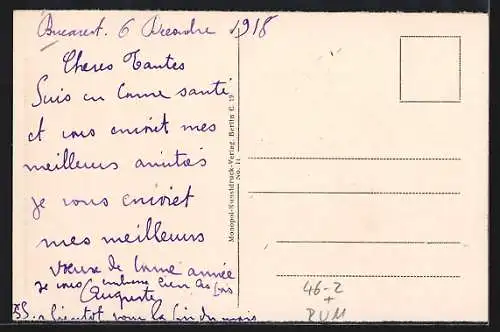 Bucarest. 6 Decembre 1918
Cheres Tantes
Suis en bonne santé
et vous envoiet mes
meilleurs amitiés
je vous envoiet
mes meilleurs
vœux de bonne année
je vous embrasse bien des fois
Auguste
PS. a bientot pour la fin du mois
Monopol-Kunstdruck-Verlag, Berlin C. 19
No. 11
46-2
+
RUM